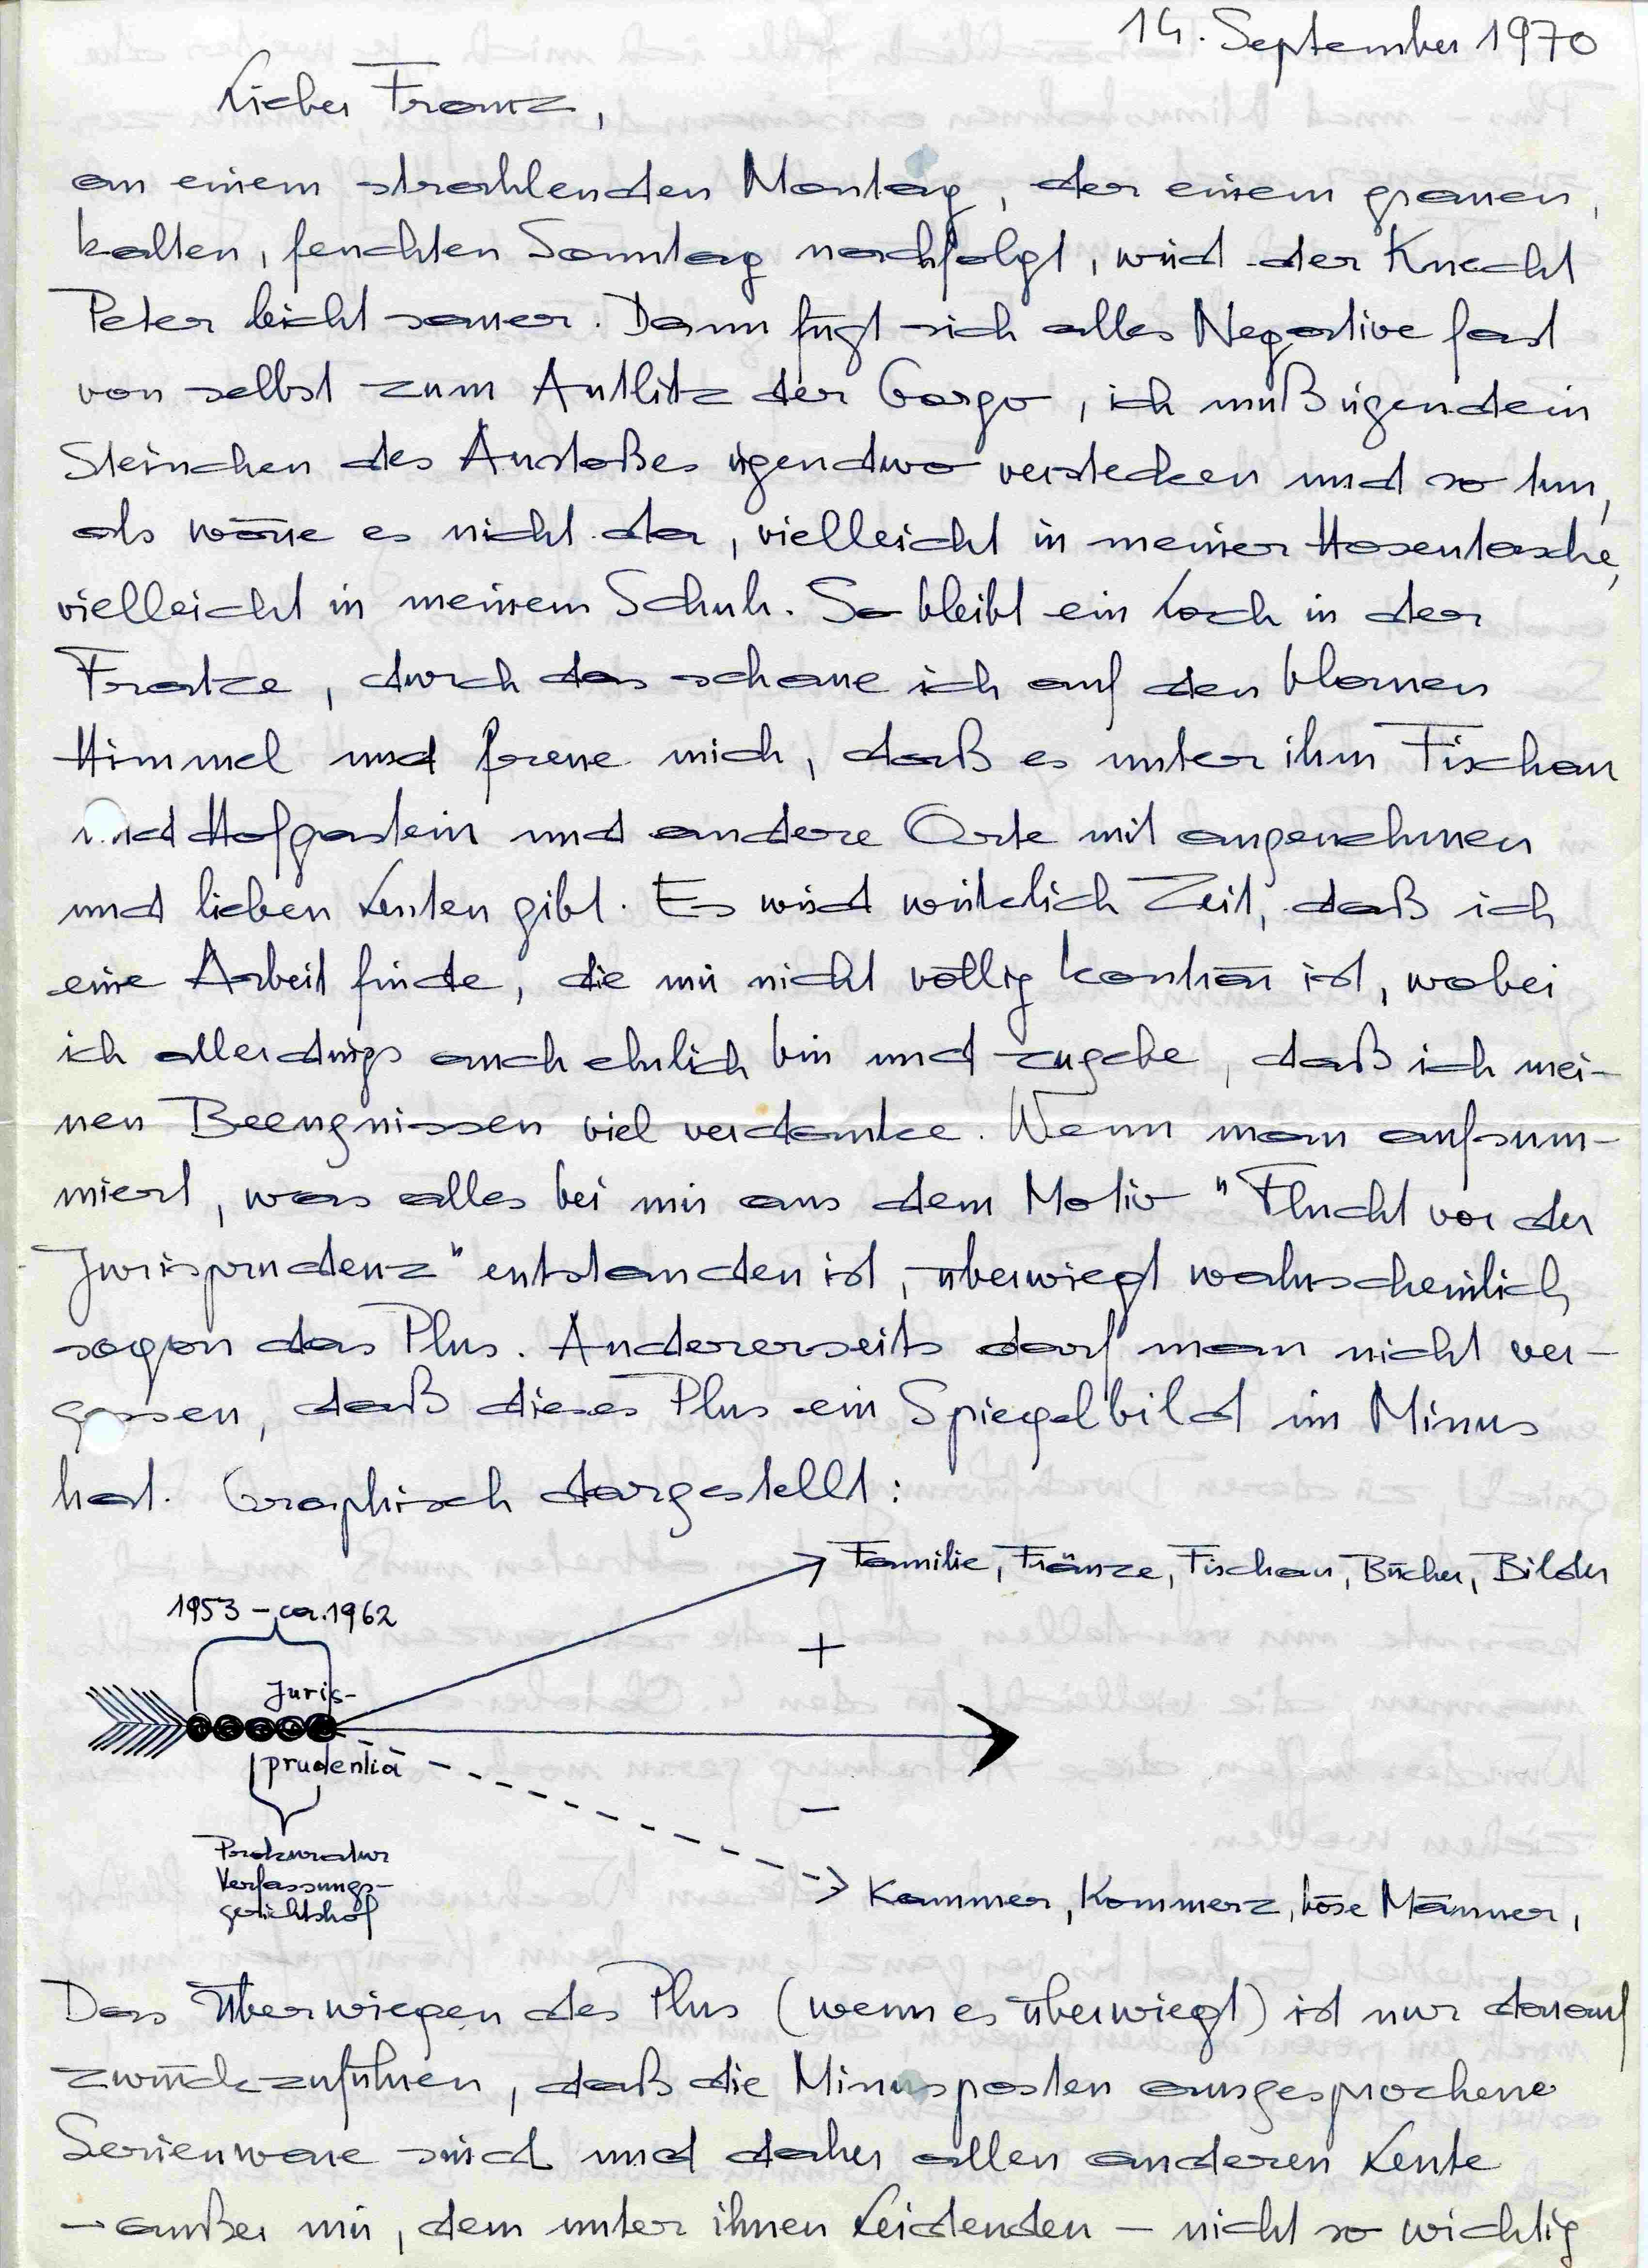 14. September 1970
Lieber Franz,
an einem strahlenden Montag, der einem grauen,
kalten, feuchten Sonntag nachfolgt, wird der Knecht
Peter leicht sauer. Dann fügt sich alles Negative fast
von selbst zum Antlitz der Gorgo, ich muß irgendein
Steinchen des Anstoßes irgendwo verstecken und so tun,
als wäre es nicht da, vielleicht in meiner Hosentasche,
vielleicht in meinem Schuh. So bleibt ein Loch in der
Fratze, durch das schaue ich auf den blauen
Himmel und freue mich, daß es unter ihm Fischau
und Hofgastein und andere Orte mit angenehmen
und lieben Leuten gibt. Es wird wirklich Zeit, daß ich
eine Arbeit finde, die mir nicht völlig konträr ist, wobei
ich allerdings auch ehrlich bin und zugebe, daß ich mei-
nen Beengnissen viel verdanke. Wenn man aufsum-
miert, was alles bei mir aus dem Motiv "Flucht vor der
Jurisprudenz" entstanden ist, überwiegt wahrscheinlich
sogar das Plus. Andererseits darf man nicht ver-
gessen, daß dieses Plus ein Spiegelbild im Minus
hat. Graphisch dargestellt:
Familie, Fränze, Fischau, Bücher, Bilder
1953 - ca. 1962
+
Juris-
prudentia
-
Prokuratur
Verfassungs-
gerichtshof
Kammer, Kommerz, böse Männer,
Das Überwiegen des Plus (wenn es überwiegt) ist nur darauf
zurückzuführen, daß die Minusposten ausgesprochene
Serienware sind und daher allen anderen Leute
- außer mir, dem unter ihnen Leidenden - nicht so wichtig